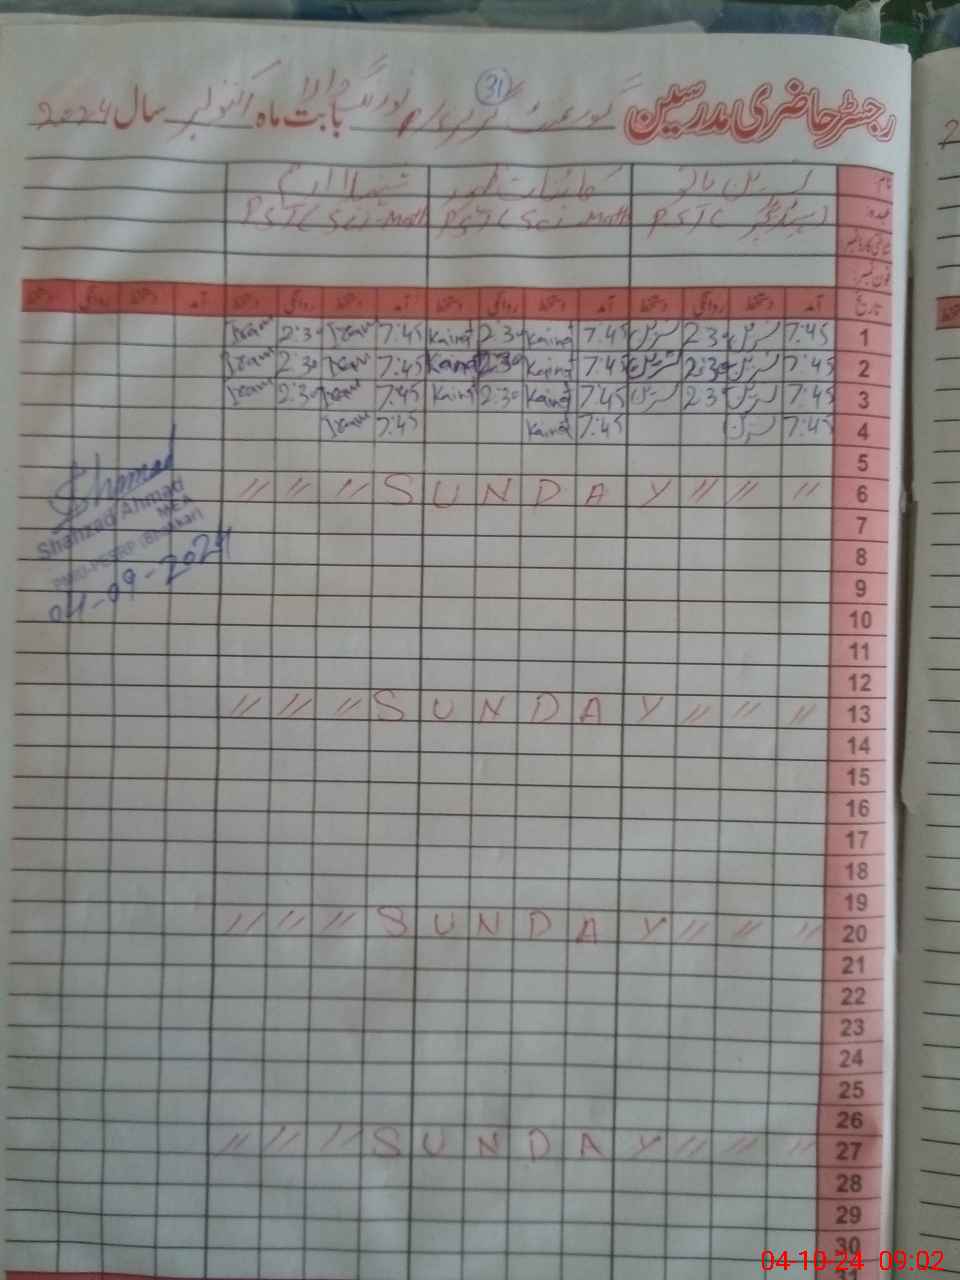 31
رجسٹر حاضری مدرسین گورنمنٹ بابت ماہ اکتوبر سال 2024
نام
عہدہ PST( PST( Sci-Math PST( Sci-Math
شناختی کارڈ نمبر
فون نمبر
تاریخ آمد دستخط روانگی دستخط آمد دستخط روانگی دستخط آمد دستخط روانگی دستخط آمد دستخط روانگی دستخط
1 7:45 2:30 7:45 Kainat 2:30 Kainat 7:45 Iram 2:30 Iram
2 7:45 2:30 7:45 Kainat 2:30 Kainat 7:45 Iram 2:30 Iram
3 7:45 2:30 7:45 Kainat 2:30 Kainat 7:45 Iram 2:30 Iram
4 7:45 7:45 Kainat 7:45 Iram
5
6 〃 〃 〃 S U N D A Y 〃 〃 〃
7
8
9
10
11
12
13 〃 〃 〃 S U N D A Y 〃 〃 〃
14
15
16
17
18
19
20 〃 〃 〃 S U N D A Y 〃 〃 〃
21
22
23
24
25
26
27 〃 〃 〃 S U N D A Y 〃 〃 〃
28
29
30
Shahzad Ahmad
MEA
04-09-2024
04-10-24 09:02